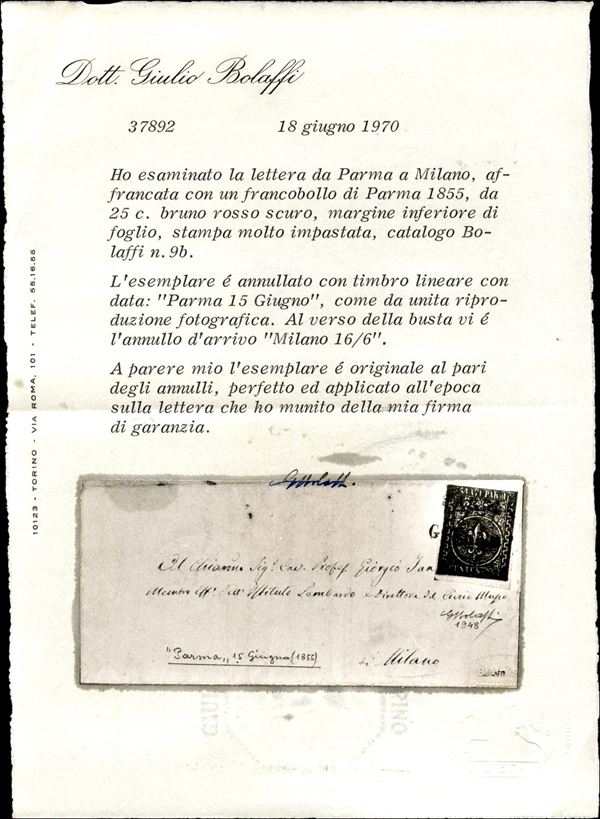 Dott. Giulio Bolaffi
37892 18 giugno 1970
Ho esaminato la lettera da Parma a Milano, af-
francata con un francobollo di Parma 1855, da
25 c. bruno rosso scuro, margine inferiore di
foglio, stampa molto impastata, catalogo Bo-
laffi n. 9b.
L'esemplare é annullato con timbro lineare con
data: "Parma 15 Giugno", come da unita ripro-
duzione fotografica. Al verso della busta vi é
l'annullo d'arrivo "Milano 16/6".
A parere mio l'esemplare é originale al pari
degli annulli, perfetto ed applicato all'epoca
sulla lettera che ho munito della mia firma
di garanzia.
10123 - TORINO - VIA ROMA, 101 - TELEF. 55.16.55
G
Al Chiarmo Sigr Cav. Profr Giorgio Jan
Membro Effo dell' Istituto Lombardo Direttore del Civico Museo
GBolaffi
1948
"Parma,, 15 Giugno (1855)
di Milano